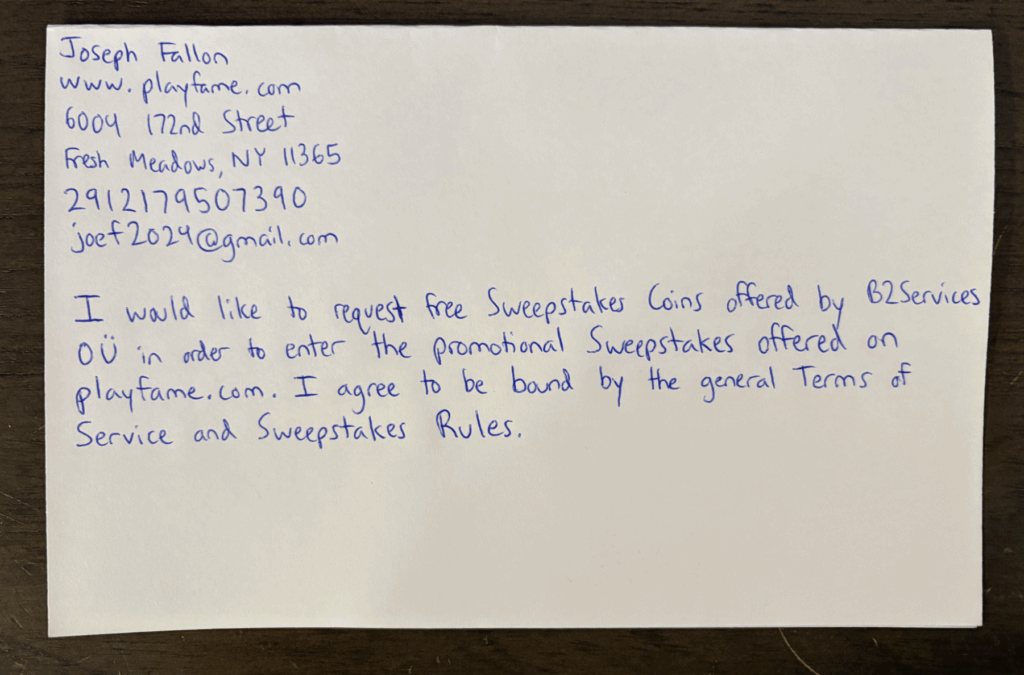 Joseph Fallon
www.playfame.com
6004 172nd Street
Fresh Meadows, NY 11365
2912179507390
joef2029@gmail.com
I would like to request free Sweepstakes Coins offered by B2Services
OÜ in order to enter the promotional Sweepstakes offered on
playfame.com. I agree to be band by the general Terms of
Service and Sweepstakes Rules.